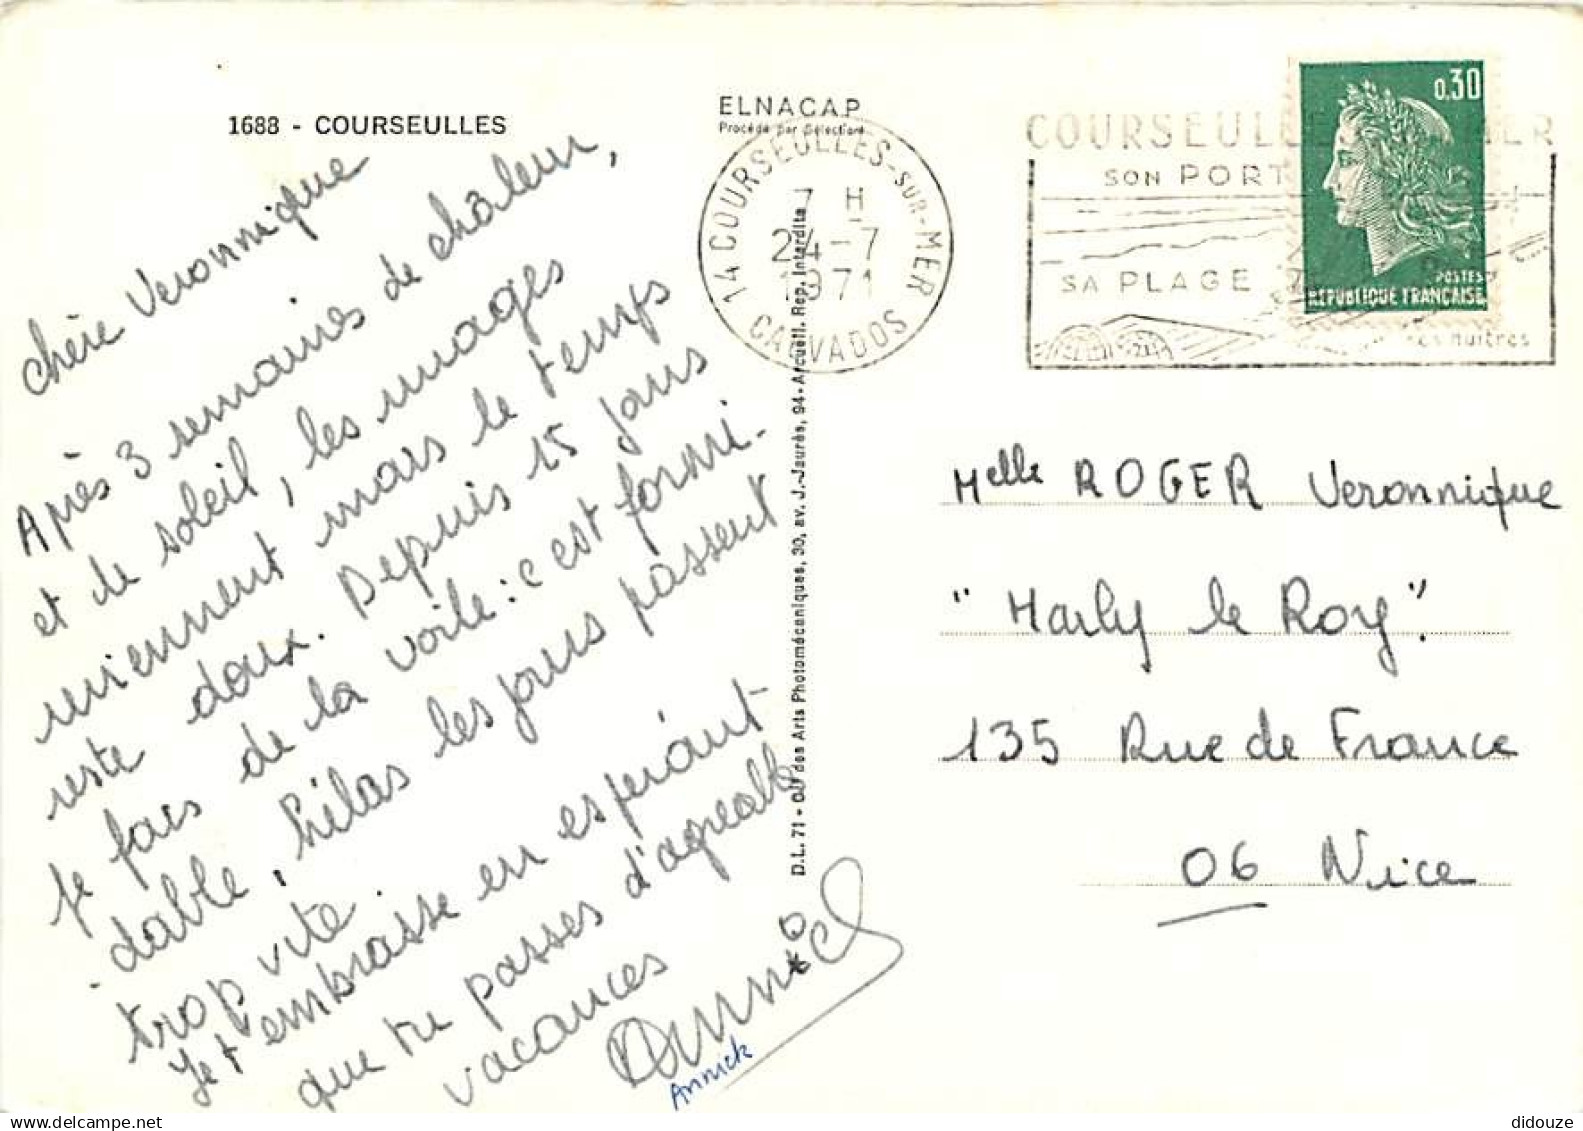 1688 - COURSEULLES
chère Veronnique
Après 3 semaines de châleur,
et de soleil, les nuages
reviennent mais le temps
reste doux. Depuis 15 jours
Je fais de la voile : c'est formi-
dable, hélas les jours passent
trop vite.
Je t'embrasse en espérant
que tu passes d'agréable
vacances
Annick
Annick
ELNACAP
Procédé par Sélection
14 COURSEULLES-SUR-MER
7 H
24-7
1971
CALVADOS
D.L. 71 - Off des Arts Photomécaniques, 30, av. J.-Jaurès, 94-Arcueil. Rep. Interdite
COURSEULLES MER
SON PORT
SA PLAGE
ses huitres
0.30
POSTES
REPUBLIQUE FRANCAISE
Melle ROGER Veronnique
"Marly le Roy".
135 Rue de France
06 Nice
didouze